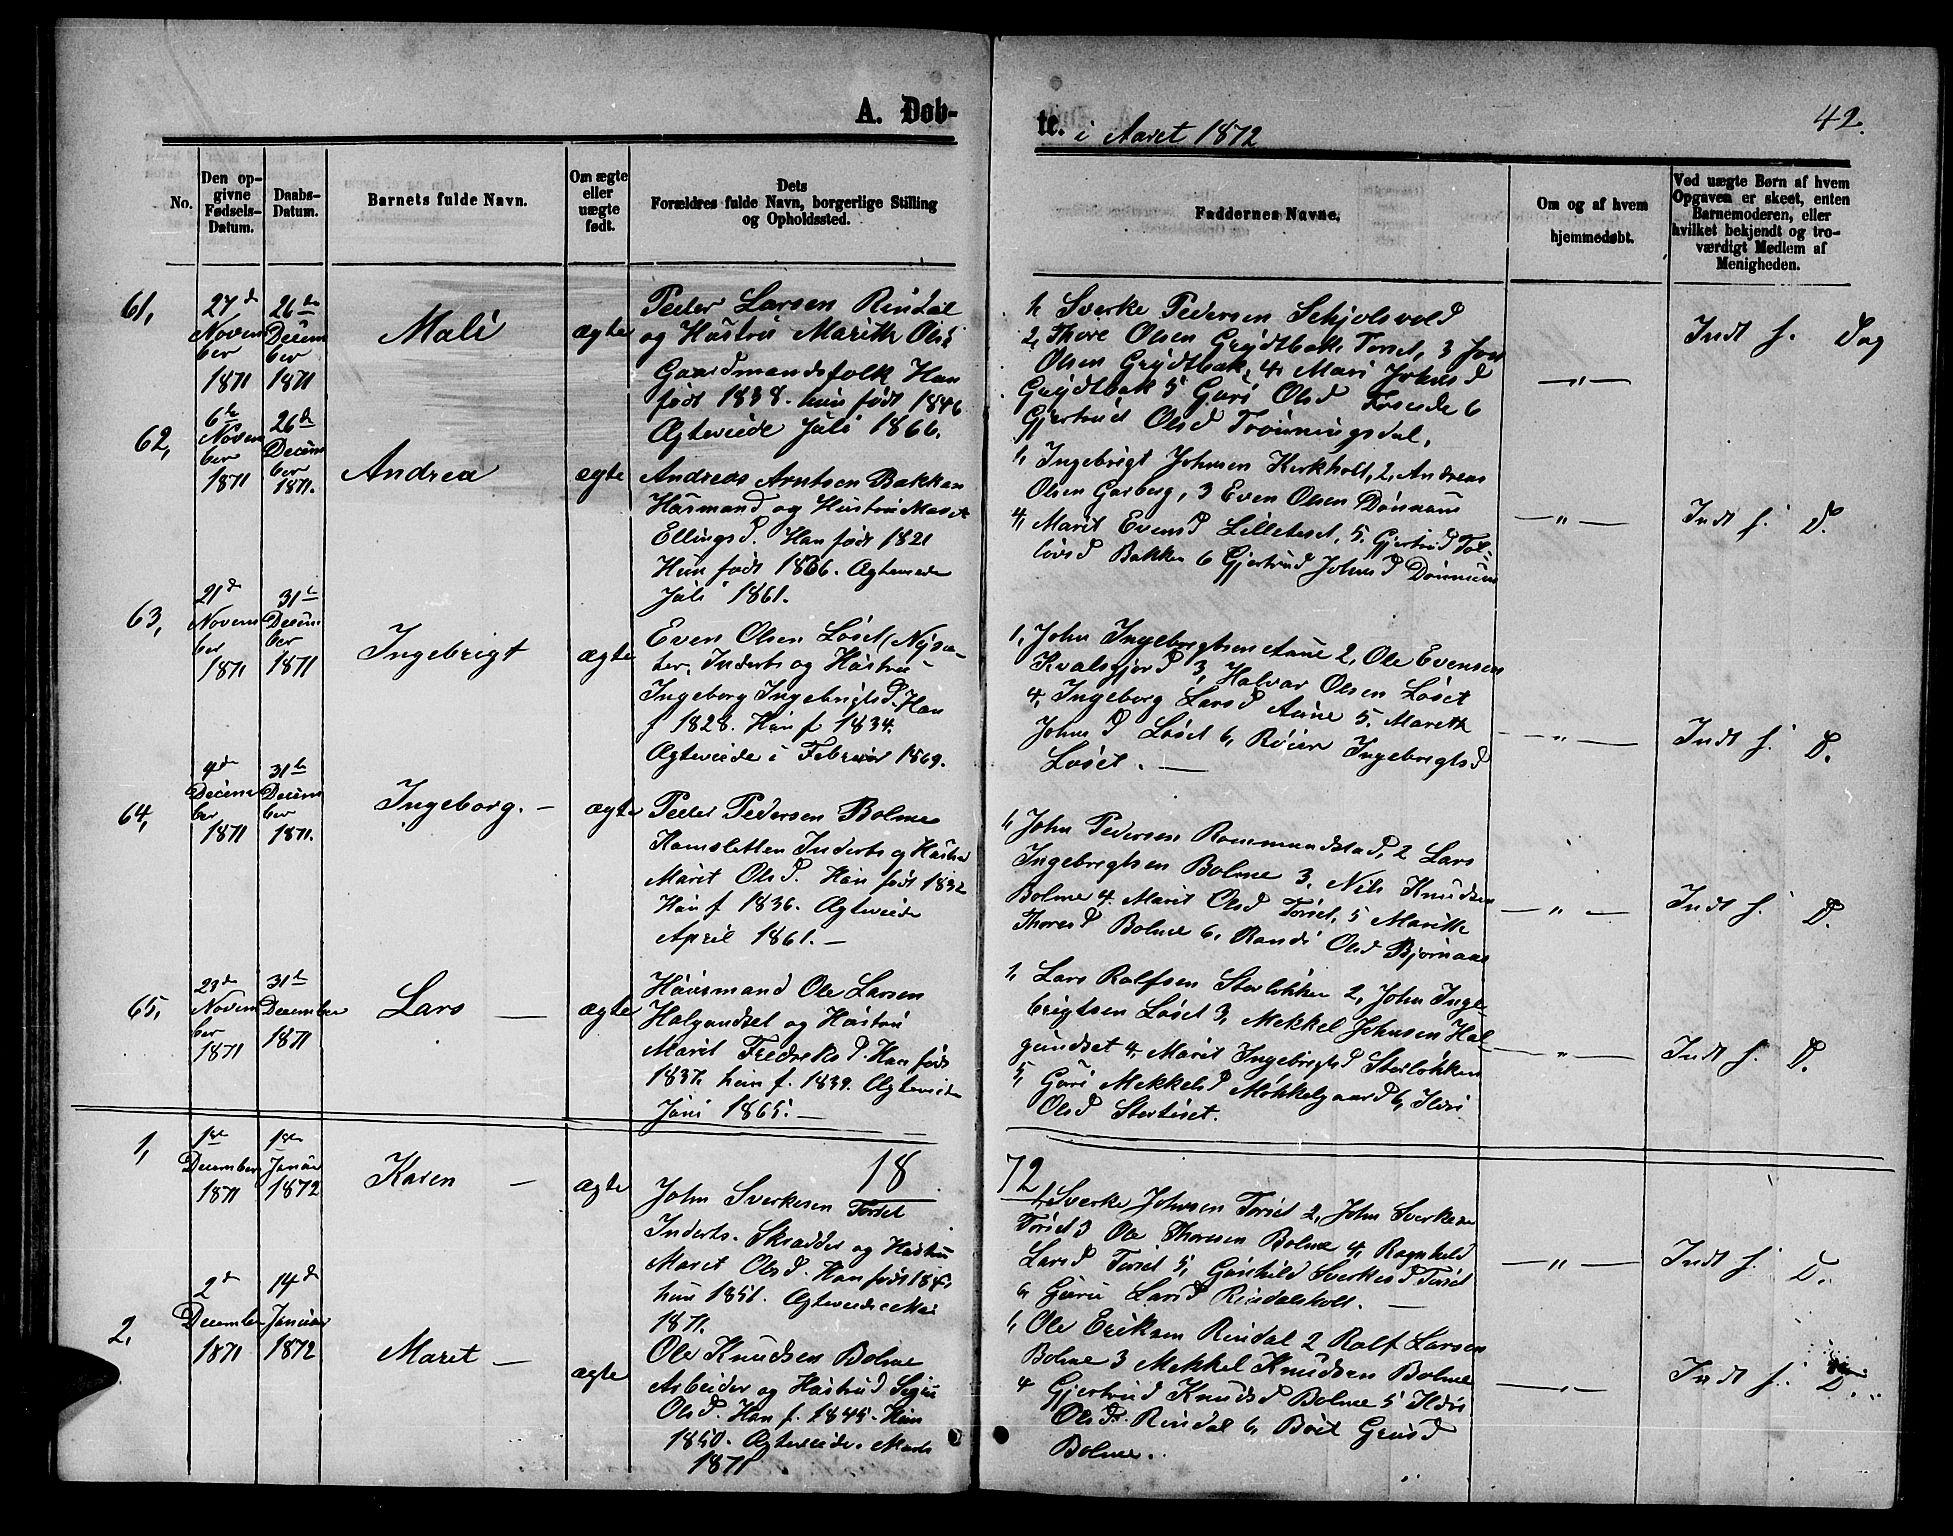 A. Døb-
te. i Aaret 1872
42.
No.
Den op-
givne
Fødsels-
Datum.
Daabs-
Datum.
Barnets fulde Navn.
Om ægte
eller
uægte
født.
Dets
Forældres fulde Navn, borgerlige Stilling
og Opholdssted.
Faddernes Navne.
Om og af hvem
hjemmedøbt.
Ved uægte Børn af hvem
Opgaven er skeet, enten
Barnemoderen, eller
hvilket bekjendt og tro-
værdigt Medlem af
Menigheden.
61,
27d
Novem
ber
1871
26de
Decem
ber
1871
Mali
ægte
Peder Larsen Rindal
og Hustru Marith Olsd
Gaardmandsfolk Han
født 1838. hun født 1846
Ægteviede Juli 1866.
1, Sverke Pedersen Schjolsvold
2, Thore Olsen Grydtbak Torset, 3 Jon
Olsen Grydtbak, 4, Mari Johnsd
Grydtbak 5 Guri Olsd Tosende 6
Gjertrud Olsd Trønningsdal,
— " —
Indt f. Dag
62,
6te
Novem
ber
1871
26de
Decem
ber
1871.
Andrea
ægte
Andreas Arntsen Bakken
Husmand og Hustru Maret
Ellingsd. Han født 1821
Hun født 1836. Ægteviede
Juli 1861.
1, Ingebrigt Johnsen Kirkholt, 2, Andreas
Olsen Garberg, 3 Even Olsen Dønnum
4, Marit Evensd Lilleteset, 5. Gjertrud Tol-
lovsd Bakken 6 Gjertrud Johnsd Dønnum
— " —
Indt f. D.
63,
21d
Novem
ber
1871
31te
Decem
ber
1871
Ingebrigt
ægte
Even Olsen Løset (Nysæ-
ter, Inderts og Hustru
Ingeborg Ingebrigtsd. Han
f 1828. Hun f 1834.
Ægteviede i Februar 1869.
1, John Ingebrigtsen Aune 2, Ole Evensen
Kvalsgjerd 3, Halvar Olsen Løset
4, Ingeborg Larsd Aune 5. Marith
Johnsd Løset 6, Røier Ingebrigtsd
Løset. —
— " —
Indt f. D.
64,
9de
Decem
ber
1871
31te
Decem
ber
1871.
Ingeborg. —
ægte
Peder Pedersen Bolme
Hamsletten Inderts og Hustru
Marit Olsd. Han født 1832
Hun f 1836. Ægteviede
April 1861. —
1, John Pedersen Rommundstad, 2 Lars
Ingebrigtsen Bolme 3, Nils Knudsen
Bolme 4. Marit Olsd Torset, 5 Marith
Thoresd Bolme 6, Randi Olsd Bjørnaas
— " —
Indt f. D.
65,
23de
Novem
ber
1871
31te
December
1871
Lars —
ægte
Huusmand Ole Larsen
Halgundset og Hustru
Marit Fredriksd. Han født
1837. hun f. 1839. Ægteviede
Juni 1865. —
1, Lars Rolfsen Storløkken 2, John Inge-
brigtsen Løset 3, Mekkel Johnsen Hal-
gundset 4, Marit Ingebrigtsd Storløkken
5, Guri Mekkelsd Mekkelgaard 6, Ildri
Olsd Storteset.
— " —
Indt f. D.
1872
1,
1ste
December
1871
1ste
Januar
1872
Karen —
ægte
John Sverkesen Torset
Inderts. Skrædder og Hustru
Marit Olsd. Han født 1845
hun 1851. Ægteviede Mai
1871.
1, Sverke Johnsen Torset 2, John Sverkesen
Torset 3 Ole Thoresen Bolme 4, Ragnhild
Larsd Torset 5, Gunhild Sverkesd Torset
6, Guru Larsd Rindalsholt. —
— " —
Indt f. D.
2,
2d
December
1871
14d
Januar
1872
Maret —
ægte
Ole Knudsen Bolme
Arbeider og Hustru Segru
Olsd. Han f. 1845. Hun
1850. Ægteviede. Marts
1871
1, Ole Eriksen Rindal 2 Rolf Larsen
Bolme 3 Mekkel Knudsen Bolme
4 Gjertrud Knudsd Bolme 5 Ildri
Olsd. Rindal 6, Beret Gunsd
Bolme.
— " —
Indt f. D.